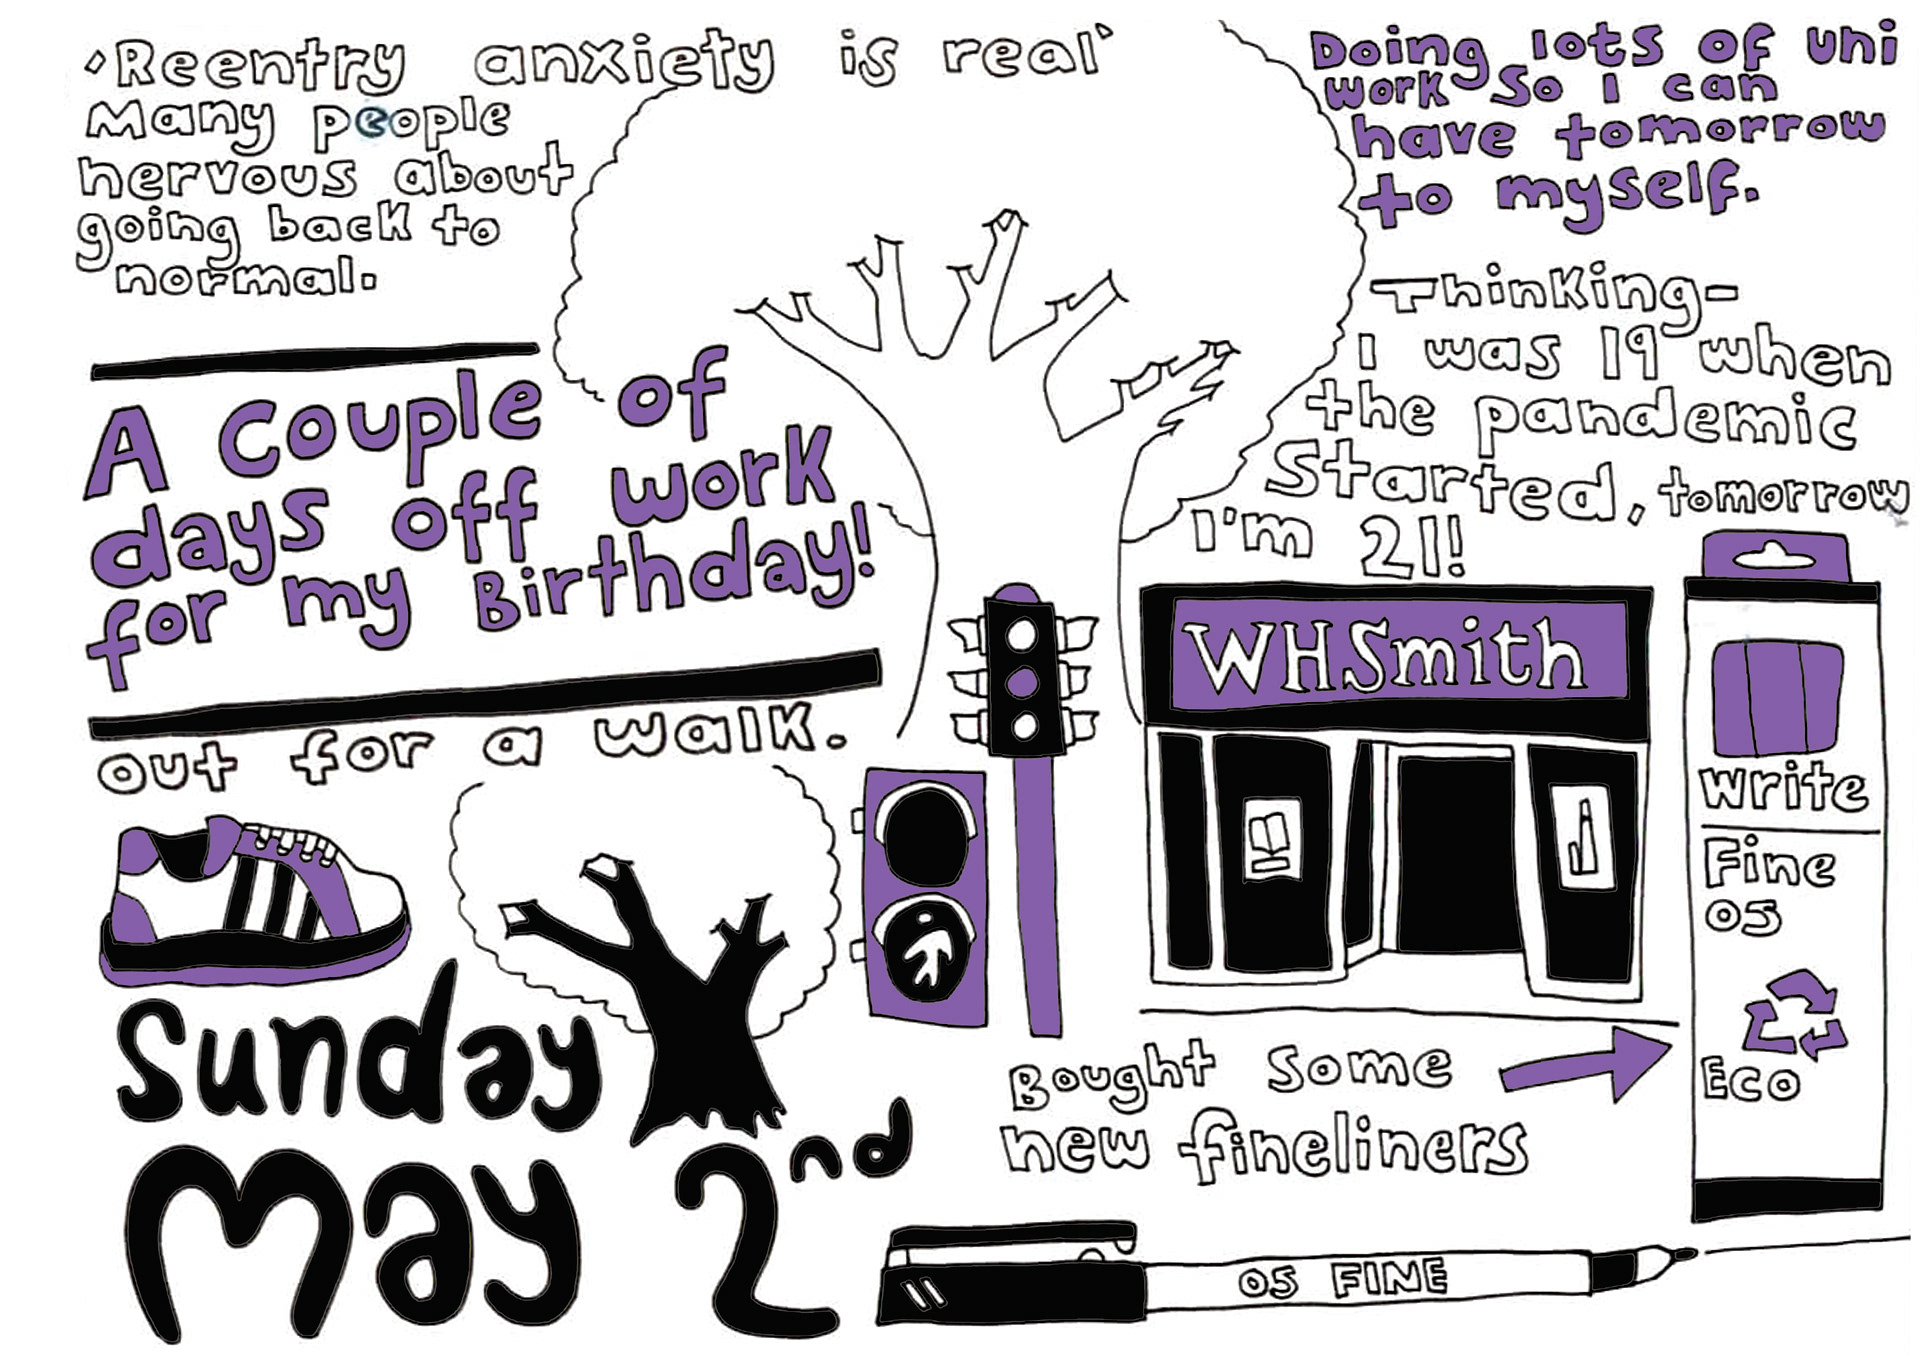 'Reentry anxiety is real'
Many people
nervous about
going back to
normal.
Doing lots of uni
work so I can
have tomorrow
to myself.
Thinking-
I was 19 when
the pandemic
Started, tomorrow
I'm 21!
A couple of
days off work
for my Birthday!
out for a walk.
WHSmith
write
Fine
05
Eco
Bought some
new fineliners
Sunday
May 2nd
05 FINE